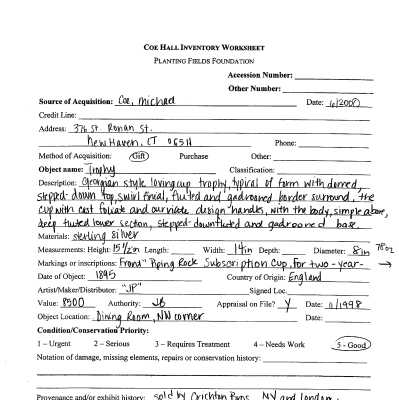 COE HALL INVENTORY WORKSHEET
PLANTING FIELDS FOUNDATION
Accession Number:
Other Number:
Source of Acquisition: Coe, Michael Date: 6/2008
Credit Line:
Address: 376 St. Ronan St.
New Haven, CT 06511 Phone:
Method of Acquisition: Gift Purchase Other:
Object name: Trophy Classification:
Description: Georgian style loving cup trophy, typical of form with domed,
stepped-down top, swirl finial, fluted and gadrooned border surround, the
cup with cast foliate and curvate design handles, with the body, simple above,
deep fluted lower section, stepped-down fluted and gadrooned base.
Materials: sterling silver
Measurements: Height: 15 1/2 in Length: Width: 14 in Depth: Diameter: 8 in 78 oz
Markings or inscriptions: Front "Piping Rock Subscription Cup, For two-year- →
Date of Object: 1895 Country of Origin: England
Artist/Maker/Distributor: "JP" Signed Loc.
Value: 8500 Authority: JB Appraisal on File? Y Date: 11/1998
Object Location: Dining Room, NW corner
Condition/Conservation Priority:
1 – Urgent 2 – Serious 3 – Requires Treatment 4 – Needs Work 5 - Good
Notation of damage, missing elements, repairs or conservation history:
Provenance and/or exhibit history: sold by Crichton Bros, NY and London.